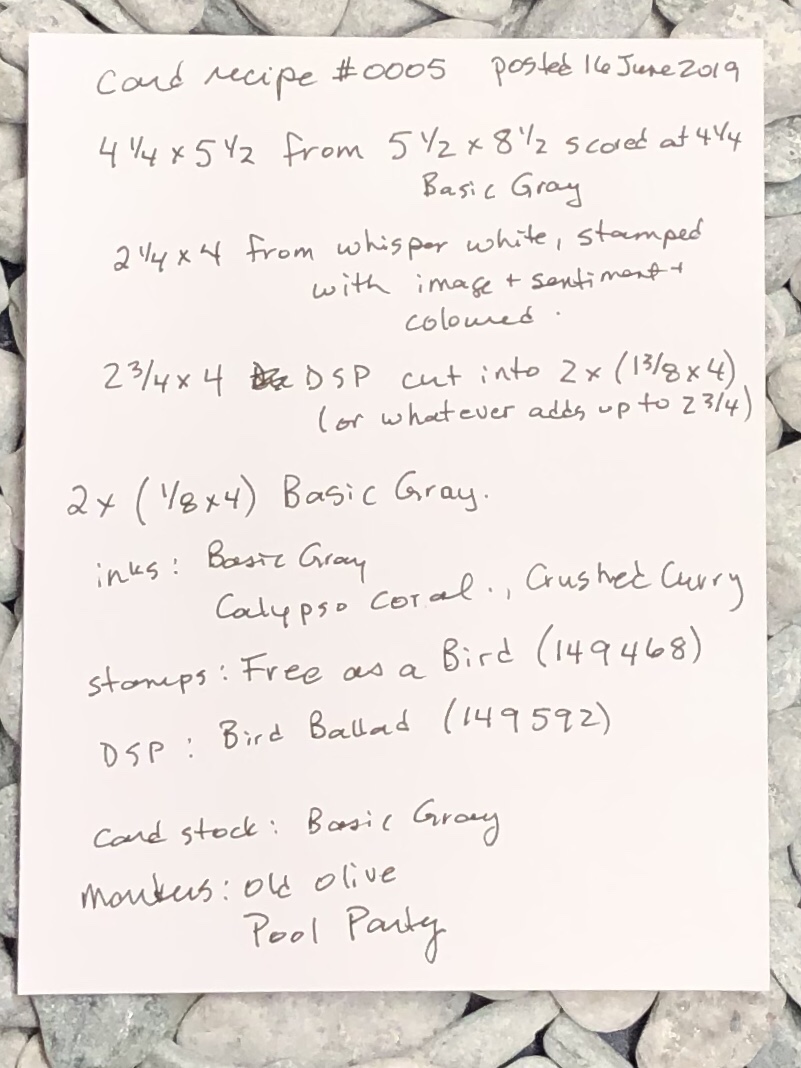 Card recipe #0005 posted 16 June 2019
4 1/4 x 5 1/2 from 5 1/2 x 8 1/2 scored at 4 1/4
Basic Gray
2 1/4 x 4 from whisper white, stamped
with image + sentiment +
coloured.
2 3/4 x 4 DSP cut into 2 x (1 3/8 x 4)
(or whatever adds up to 2 3/4)
2 x (1/8 x 4) Basic Gray.
inks: Basic Gray
Calypso Coral., Crushed Curry
stamps: Free as a Bird (149468)
DSP: Bird Ballad (149592)
Card stock: Basic Gray
Markers: Old Olive
Pool Party